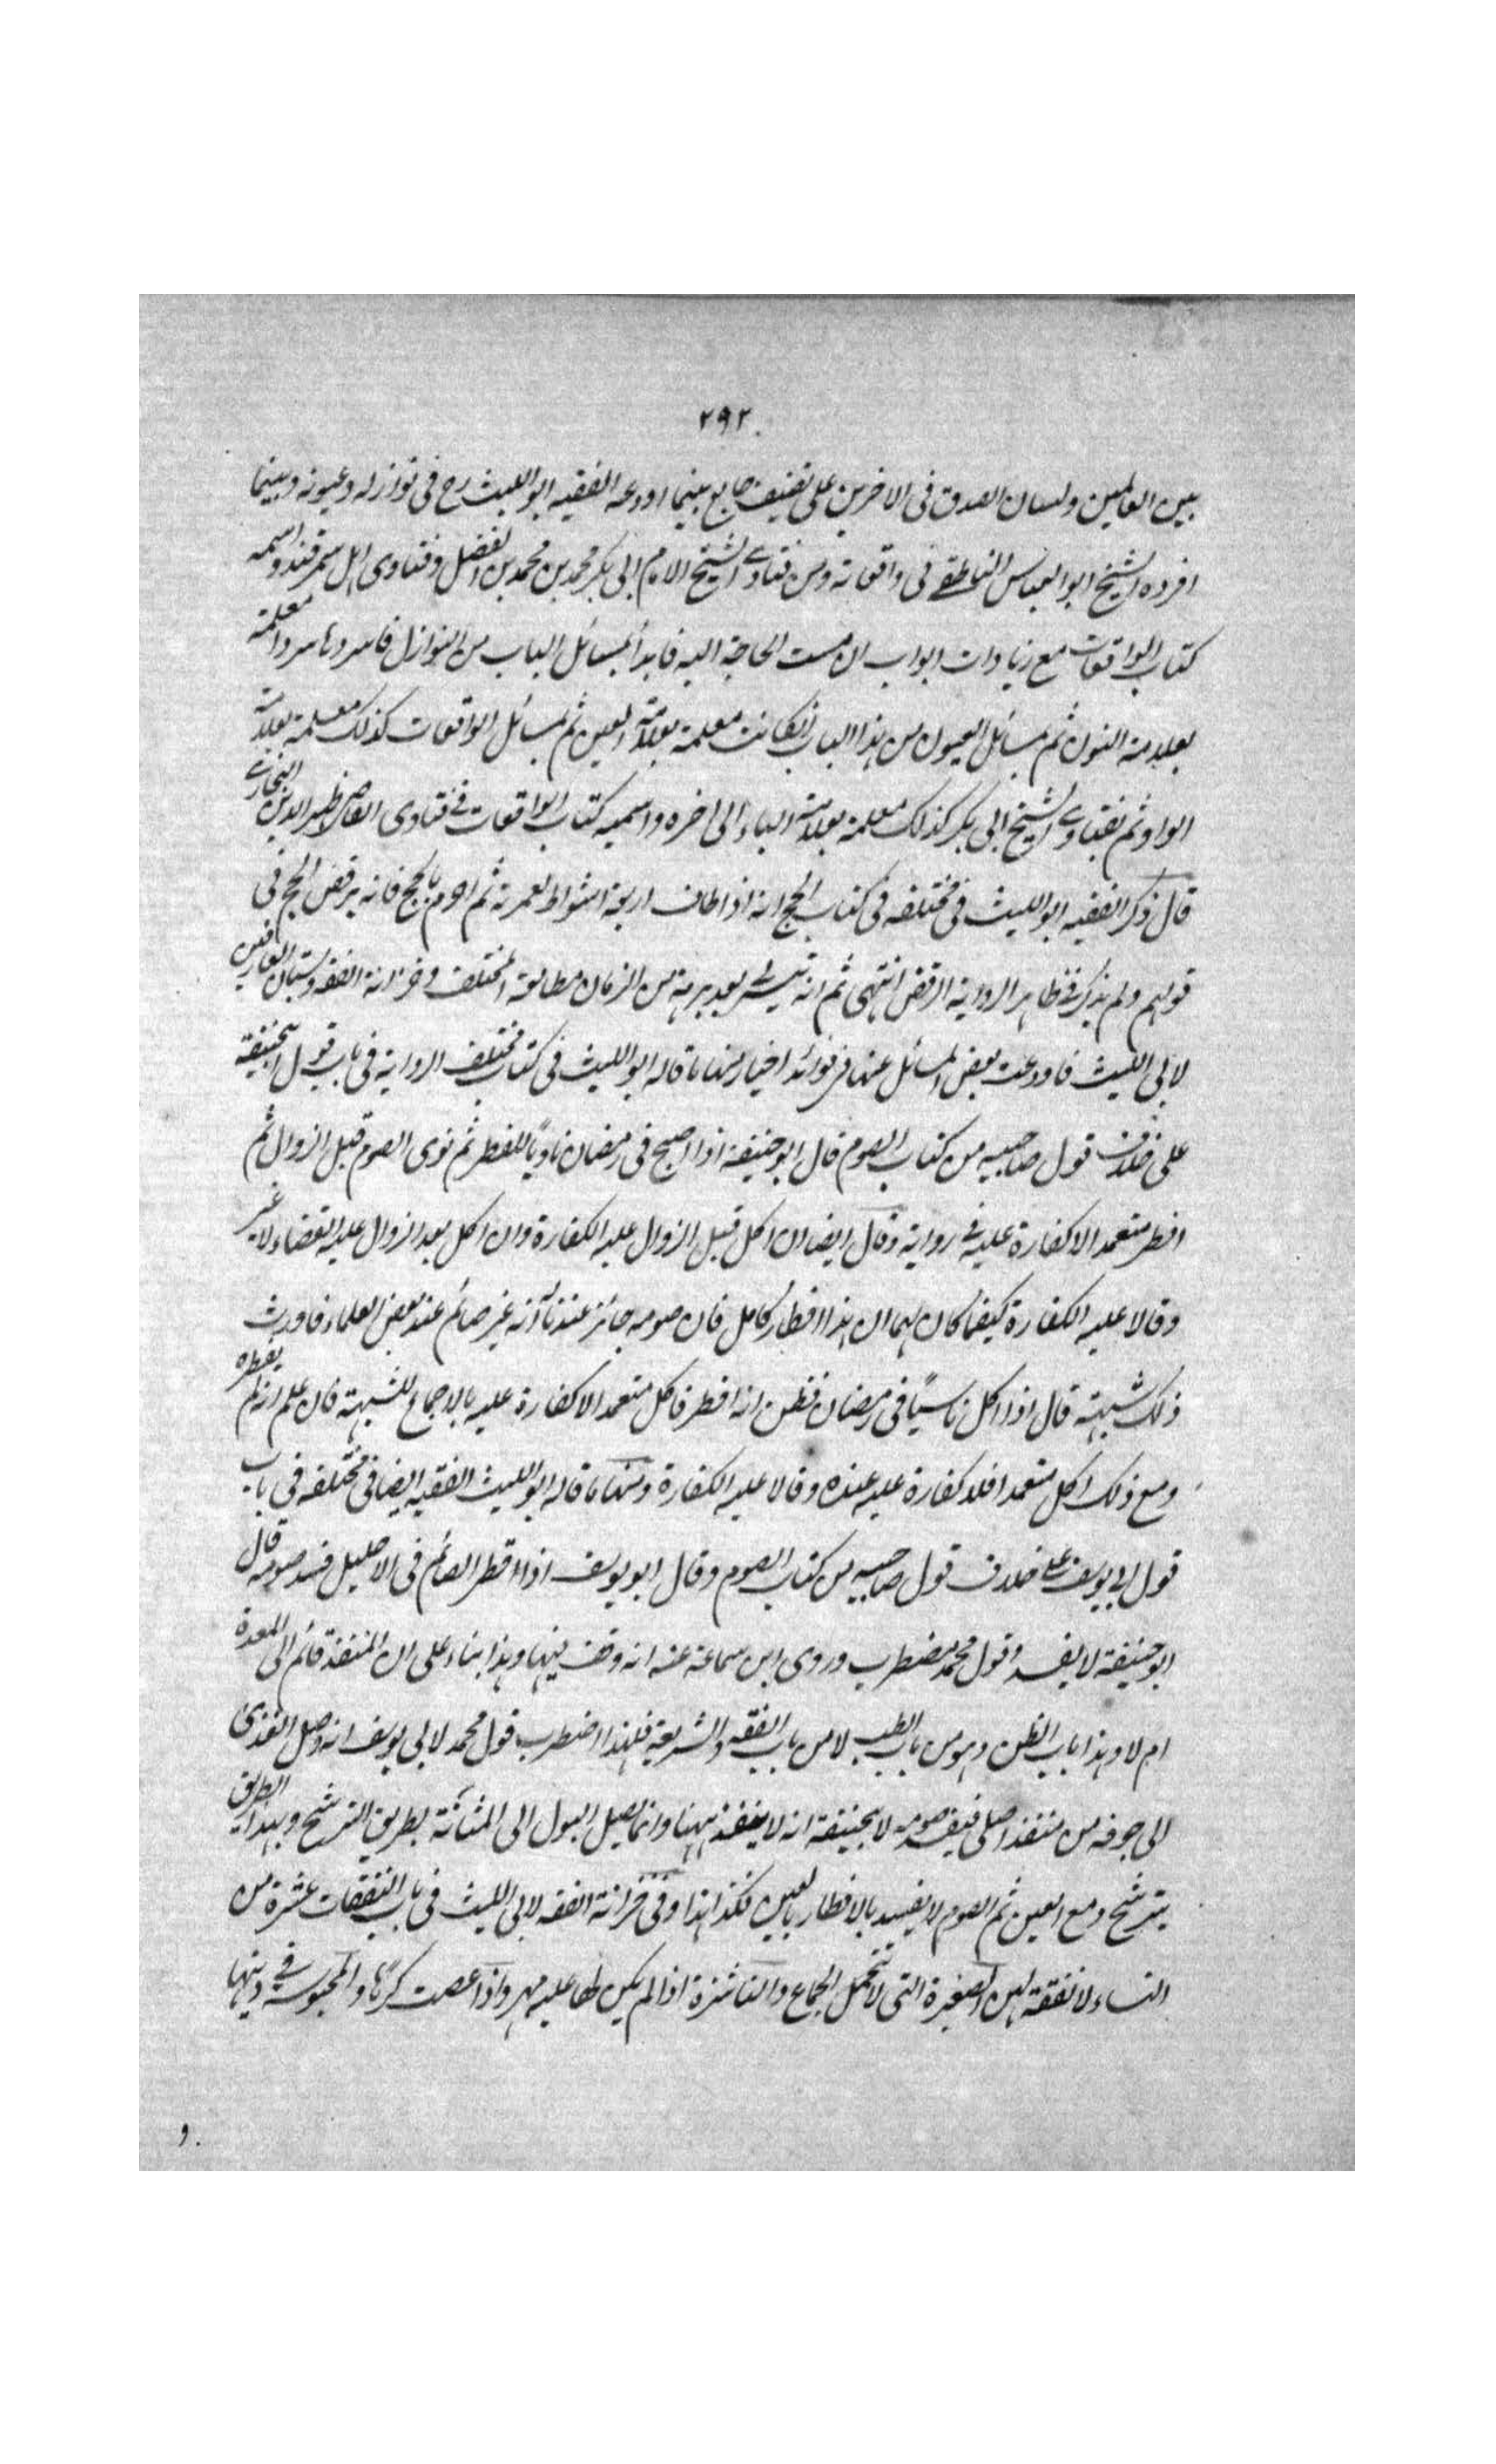 ٢٩٢
بين العالمين ولسان الصدق فى الاخرين على تصنيف جامع بينما اودعه الفقيه ابو الليث رح فى نوازله وعيونه وبينما
افرده الشيخ ابو العباس الناطقے فى واقعاته ومن فتاوے الشيخ الامام ابى بكر محمد بن محمد بن الفضل وفتاوى اهل سمرقند واسميه
كتاب الواقعات مع زيادات ابواب ان مست الحاجة اليه فابدأ بمسائل الباب من النوازل فاسردها سردا معلمة
بعلامة النون ثم مسائل العيون من هذا الباب ان كانت معلمة بعلامة العين ثم بمسائل الواقعات كذلك معلمة بعلامة
الواو ثم بفتاوے الشيخ ابى بكر كذلك معلمة بعلامة الباء الى اخره واسميه كتاب الواقعات فے فتاوى القاضى ظهير الدين البخارے
قال ذكر الفقيه ابو الليث فى مختلفه فى كتاب الحج انه اذا طاف اربعة اشواط لعمرته ثم احرم بالحج فانه يرفض الحج فى
قولهم ولم يذكر فے ظاهر الرواية الرفض انتهى ثم انه تيسر لے بعد برهة من الزمان مطالعة المختلف وخزانة الفقه وبستان العارفين
لابى الليث فاودعت بعض المسائل عنها فوائد اخبار منها ما قاله ابو الليث فى كتاب مختلف الرواية فى باب قول ابيحنيفة
على خلاف قول صاحبيه من كتاب الصوم قال ابو حنيفة اذا اصبح فى رمضان ناويًا للفطر ثم نوى الصوم قبل الزوال ثم
افطر متعمدا لا كفارة عليه فے رواية وقال ايضا ان اكل قبل الزوال عليه الكفارة وان اكل بعد الزوال عليه القضاء لا غير
وقالا عليه الكفارة كيفما كان لهما ان هذا افطار كامل فان صومه جائز عندنا له انه غير صائم عند بعض العلماء فاورث
ذلك شبهة قال اذا اكل ناسيًا فى رمضان فظن انه افطر فاكل متعمدا لا كفارة عليه بالاجماع للشبهة فان علم انه لم يفطره
ومع ذلك اكل متعمدا فلا كفارة عليه عنده وقالا عليه الكفارة ومنها ما قاله ابو الليث الفقيه ايضا فى مختلفه فى باب
قول ابى يوسف على خلاف قول صاحبيه من كتاب الصوم وقال ابو يوسف اذا اقطر الصائم فى الاحليل فسد صومه قال
ابو حنيفة لا يفسد وقول محمد مضطرب وروى ابن سماعة عنه انه وقف فيها وهذا بناء على ان المنفذ قائم الى المعدة
ام لا وهذا باب الظن وهو من باب الطب لا من باب الفقه والشريعة فلهذا اضطرب قول محمد لابى يوسف انه وصل الغذى
الى جوفه من منفذ اصلى فيفسد صومه لابيحنيفة انه لا ينفذ ههنا وانما يصل البول الى المثانة بطريق الترشح وبهذا الطريق
يترشح دمع العين ثم الصوم لا يفسد بالاقطار بالعين فكذا هذا وفى خزانة الفقه لابى الليث فى باب النفقات عشرة من
النساء لا نفقة لهن الصغيرة التى لا تتحمل الجماع والناشزة اذا لم يكن لها عليه مهر واذا غصبت كرهًا والمحبوسة فے دينها
و